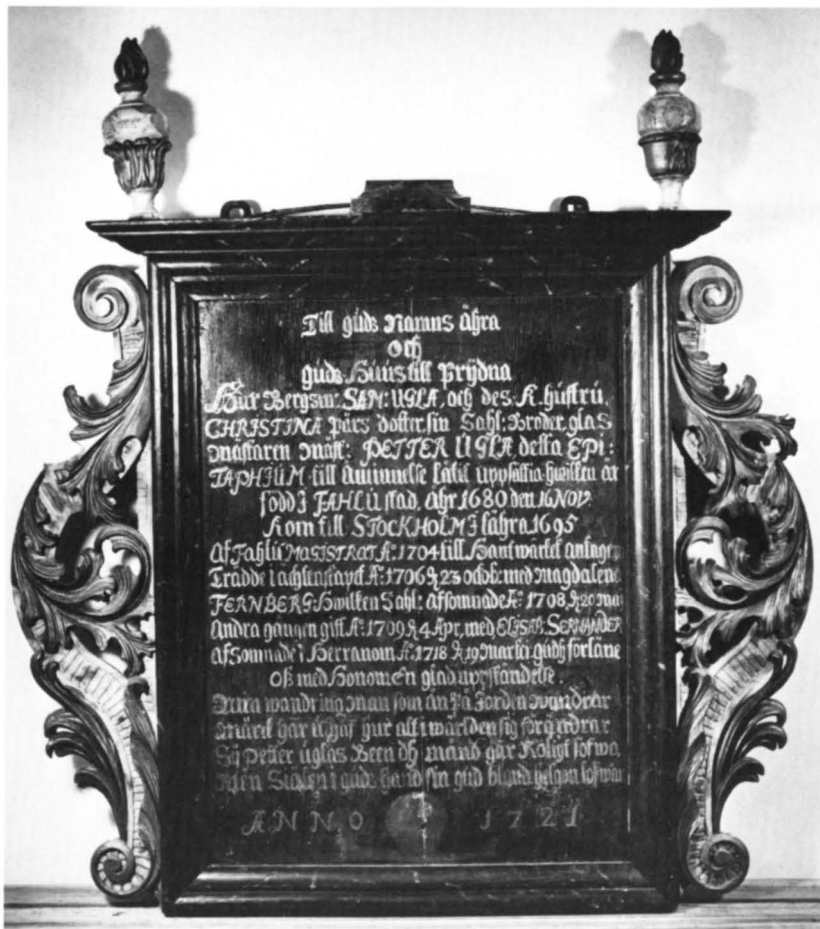 Till gúds Namns Ähra
och
gúds Húús till Prÿdna
Bergsm: SAM: UGLA, och des K. hústrú,
CHRISTINA Pärs dotter, sin Sahl: Broder, glas
mästaren mäst: PETTER ÚGLA, detta EPI:
TAPHIÚM till åminnelse låtit uppsättia hwilken är
född J FAHLÚ stad, åhr 1680 den 16 NOV:
Kom till STOCKHOLM J åhra 1695
Af Fahlú MAGISTRAT A:o 1704 till Hantwärket antagen
Trädde i ächtenskapet A:o 1706 d 23 octob: med Magdalena
FERNBERG: Hwilken Sahl: afsomnade A:o 1708 d 20
Andra gången gift A:o 1709 d 4 Apr, med ELISAB: SERNANDER
afsomnade i Herranom A:o 1718 d 19 Martii gúdh förläne
oß med Honom en glad uppståndelse.
wandringsman som än På Jorden wandrar
märck här húr alt i wärlden sig förändrar
Sÿ Petter úglas Been går Roligt sofwa
Men Siälen i gúds hand sin gúd bland helgon lofwar
ANNO 1721